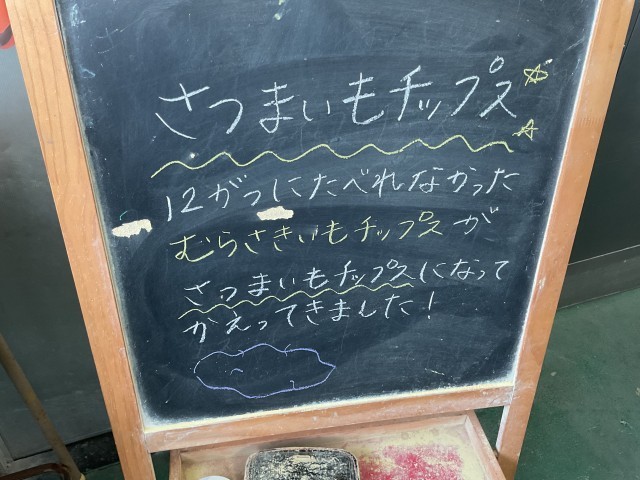 さつまいもチップス
12がつにたべれなかった
むらさきいもチップスが
さつまいもチップスになって
かえってきました!